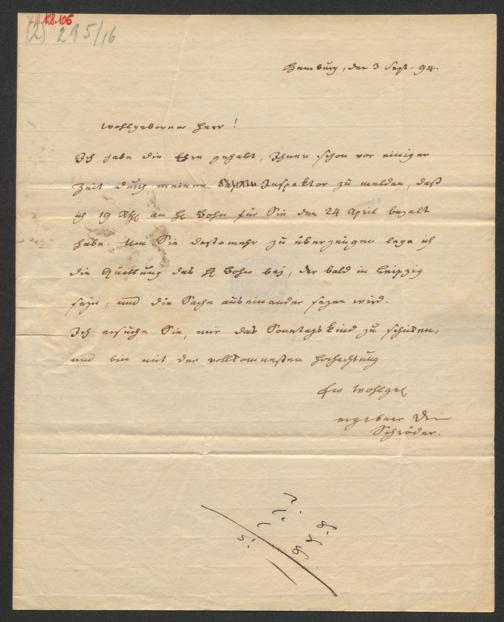 (2) 295/16
Hamburg, den 3 Sept. 94.
Wohlgeborner Herr!
Ich habe die Ehre gehabt, Ihnen schon vor einiger
Zeit durch meinen Inspektor zu melden, daß
ich 19 Rthl. an H Bohn für Sie den 24 April bezalt
habe. Um Sie destomehr zu überzeugen lege ich
die Quittung des H Bohn bej, der bald in Leipzig
sejn, und die Sache auseinander sezen wird.
Ich ersuche Sie, mir das Sonntags Kind zu schiken,
und bin mit der vollkomensten Hochachtung
Ew Wohlgeb
ergebner Dn
Schröder.